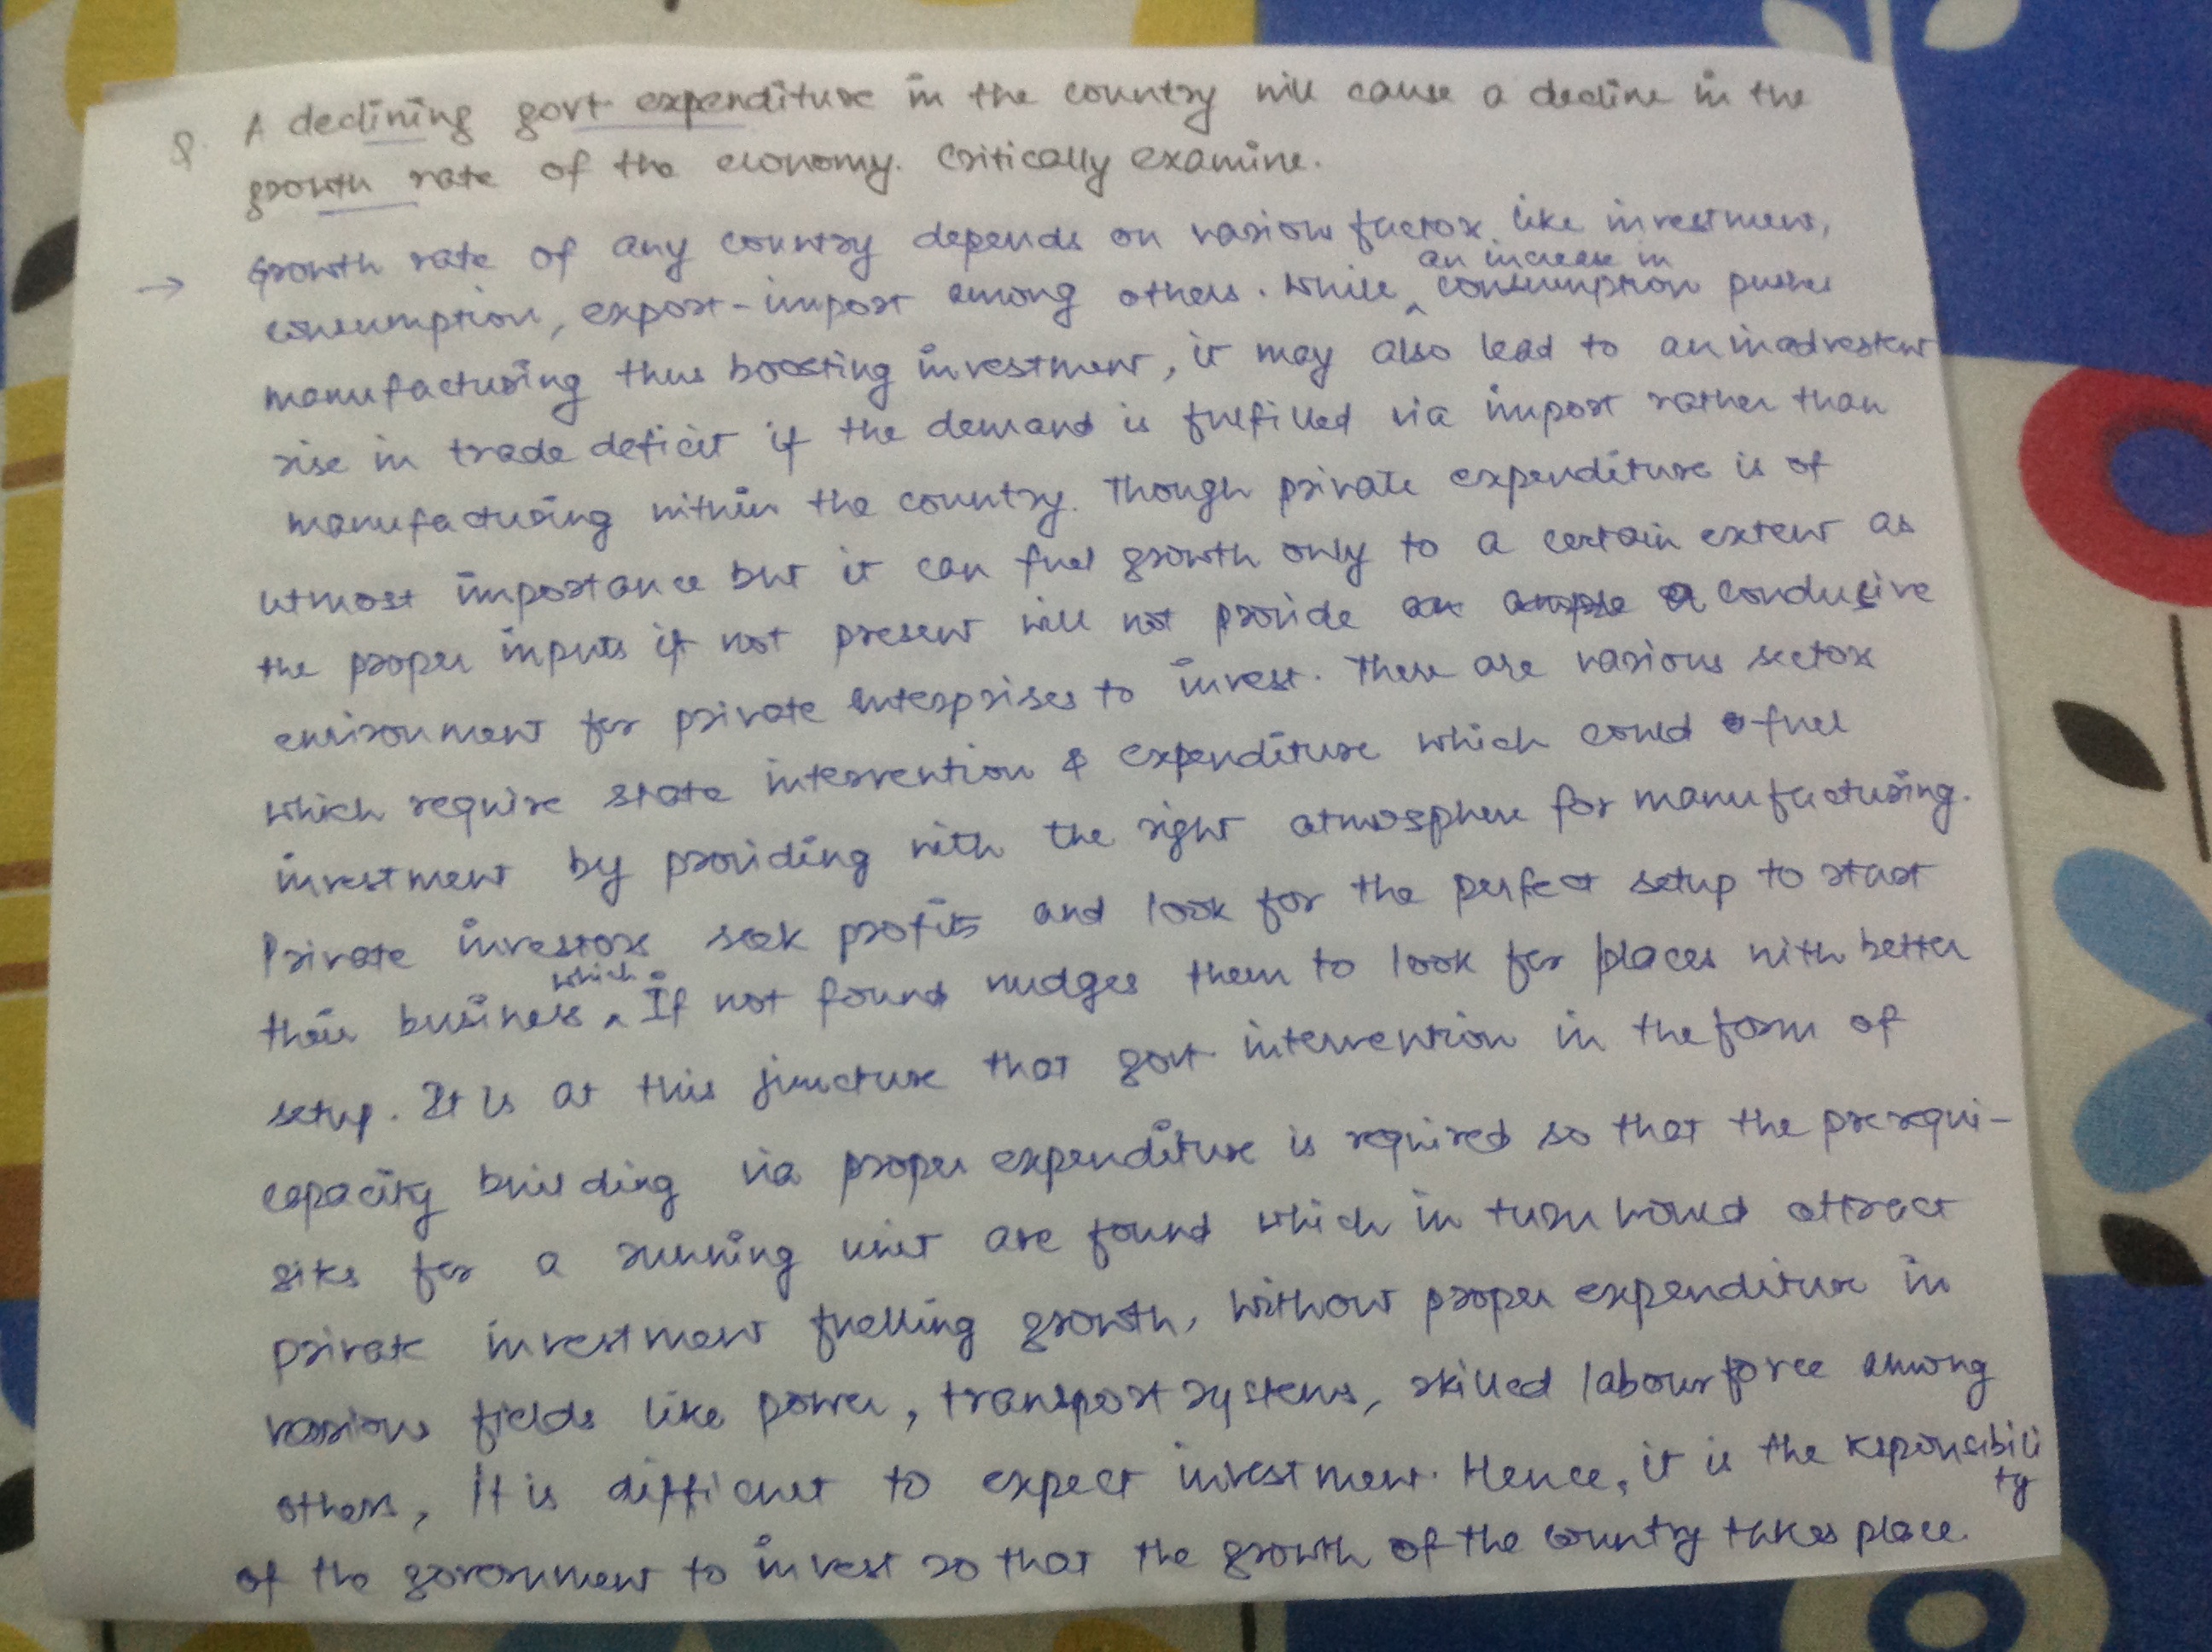 Q. A declining govt expenditure in the country will cause a decline in the
growth rate of the economy. Critically examine.
→ Growth rate of any country depends on various factors like investment,
consumption, export-import among others. While ^ an increase in consumption pushes
manufacturing thus boosting investment, it may also lead to an inadvertent
rise in trade deficit if the demand is fulfilled via import rather than
manufacturing within the country. Though private expenditure is of
utmost importance but it can fuel growth only to a certain extent as
the proper inputs if not present will not provide a conducive
environment for private enterprises to invest. There are various sectors
which require state intervention & expenditure which could fuel
investment by providing with the right atmosphere for manufacturing.
Private investors seek profits and look for the perfect setup to start
their business ^ which If not found nudges them to look for places with better
setup. It is at this juncture that govt intervention in the form of
capacity building via proper expenditure is required so that the prerequi-
sites for a running unit are found which in turn would attract
private investment fuelling growth, without proper expenditure in
various fields like power, transport systems, skilled labour force among
others, It is difficult to expect investment. Hence, it is the reponsibili
ty
of the government to invest so that the growth of the country takes place.